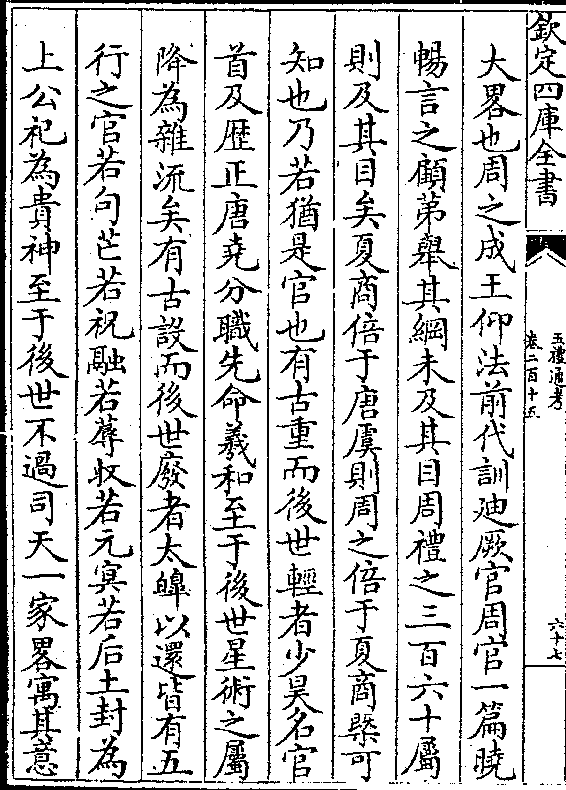 欽定四庫全書
五禮通考
卷二百十五
六十七
大畧也周之成王仰法前代訓廸厥官周官一篇曉
暢言之顧苐舉其綱未及其目周禮之三百六十屬
則及其目矣夏商倍于唐虞則周之倍于夏商槩可
知也乃若猶是官也有古重而後世輕者少昊名官
首及歴正唐堯分職先命羲和至于後世星術之屬
降為雜流矣有古設而後世廢者太皥以還皆有五
行之官若句芒若祝融若蓐收若元冥若后土封為
上公祀為貴神至于後世不過司天一家畧寓其意